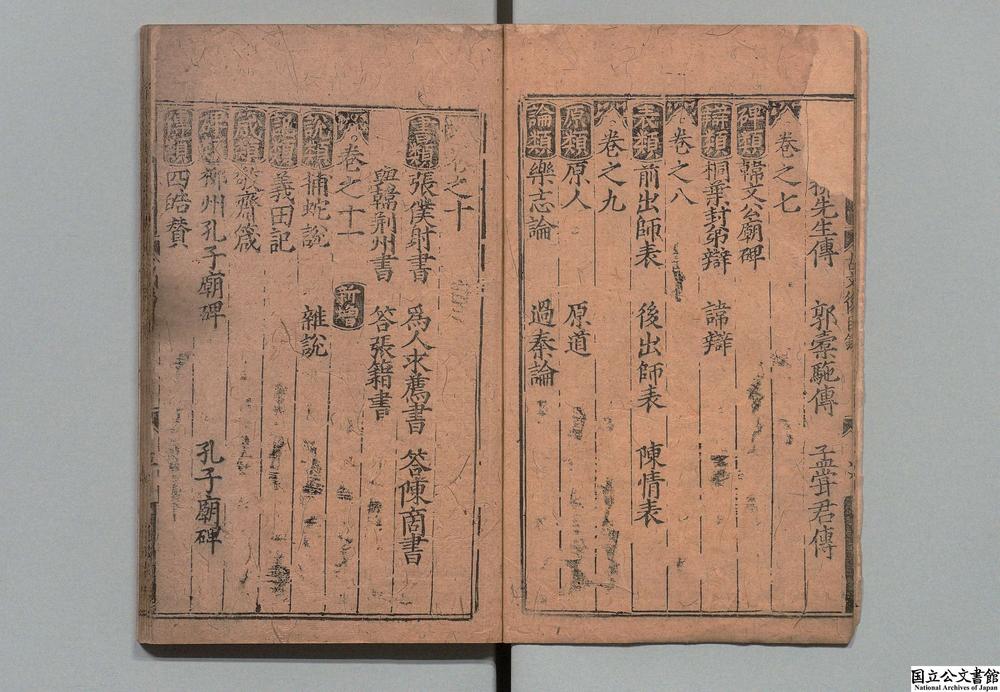 先生傳 郭橐駞傳 孟甞君傳
卷之七
碑類 韓文公廟碑
辯類 桐葉封弟辯 諱辯
卷之八
表類 前出師表 後出師表 陳情表
卷之九
原類 原人 原道
論類 樂志論 過秦論
卷之十
書類 張僕射書 爲人求薦書 答陳商書
與韓荆州書 答張籍書
卷之十一 新增
說類 捕蛇說 雜說
記類 義田記
箴類 敬齋箴
碑類 柳州孔子廟碑 孔子廟碑
類 四皓贊
国立公文書館
National Archives of Japan